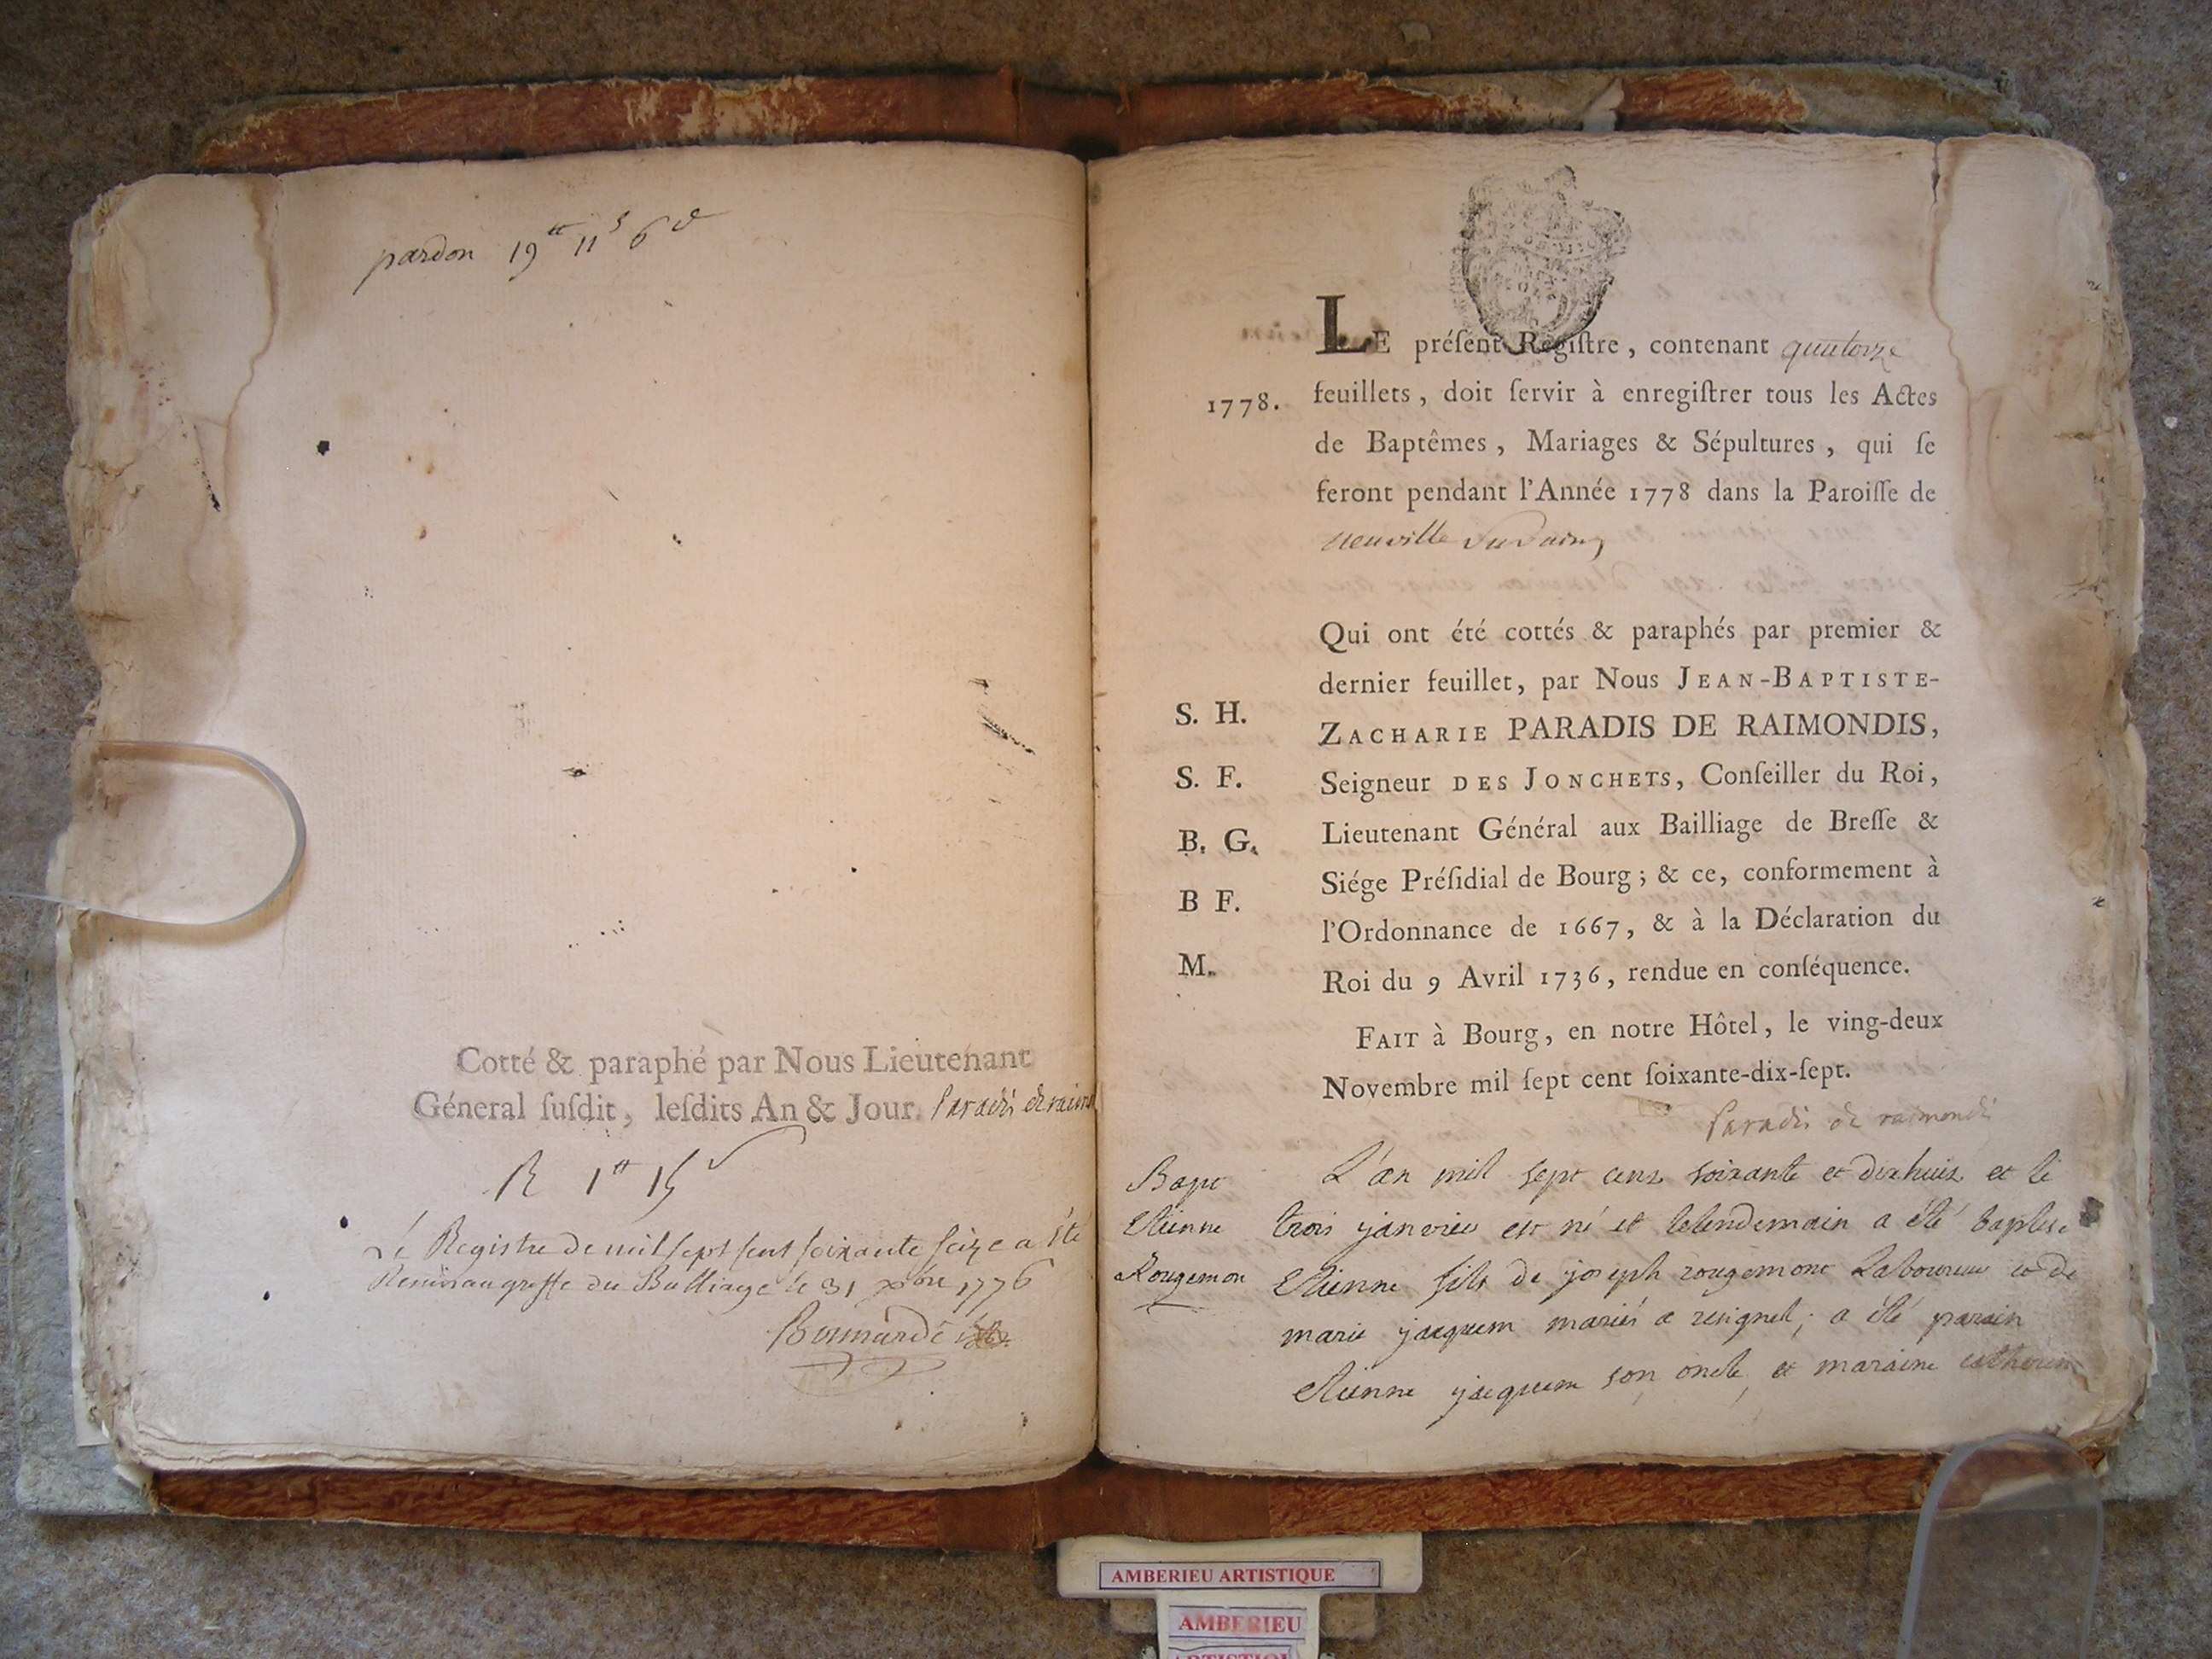 pardon 19tt 11s 6d
Cotté & paraphé par Nous Lieutenant
Géneral ſuſdit, leſdits An & Jour. Paradis de raimond
R 1tt 15
Le Registre de mil sept cent soixante seize a été
Remis au greffe du Bailliage le 31 xbre 1776
LE préſent Regiſtre, contenant quatorze
1778.
feuillets, doit ſervir à enregiſtrer tous les Actes
de Baptêmes, Mariages & Sépultures, qui ſe
feront pendant l'Année 1778 dans la Paroiſſe de
neuville
Qui ont été cottés & paraphés par premier &
dernier feuillet, par Nous JEAN-BAPTISTE-
S. H.
ZACHARIE PARADIS DE RAIMONDIS,
S. F.
Seigneur DES JONCHETS, Conſeiller du Roi,
B. G.
Lieutenant Général aux Bailliage de Breſſe &
Siége Préſidial de Bourg; & ce, conformement à
B F.
l'Ordonnance de 1667, & à la Déclaration du
M.
Roi du 9 Avril 1736, rendue en conſéquence.
FAIT à Bourg, en notre Hôtel, le ving-deux
Novembre mil ſept cent ſoixante-dix-ſept.
Paradis de raimondi
Bapt
Etienne
Rougemon
L'an mil sept cens soixante et dix huit et le
trois janvier est né et le lendemain a été baptise
Etienne fils de joseph rougemont Laboureur et de
marie jacquem mariés a reignel; a été parain
Etienne jacquem son oncle, et maraine catherine
AMBERIEU ARTISTIQUE
AMBERIEU
ARTISTIQUE